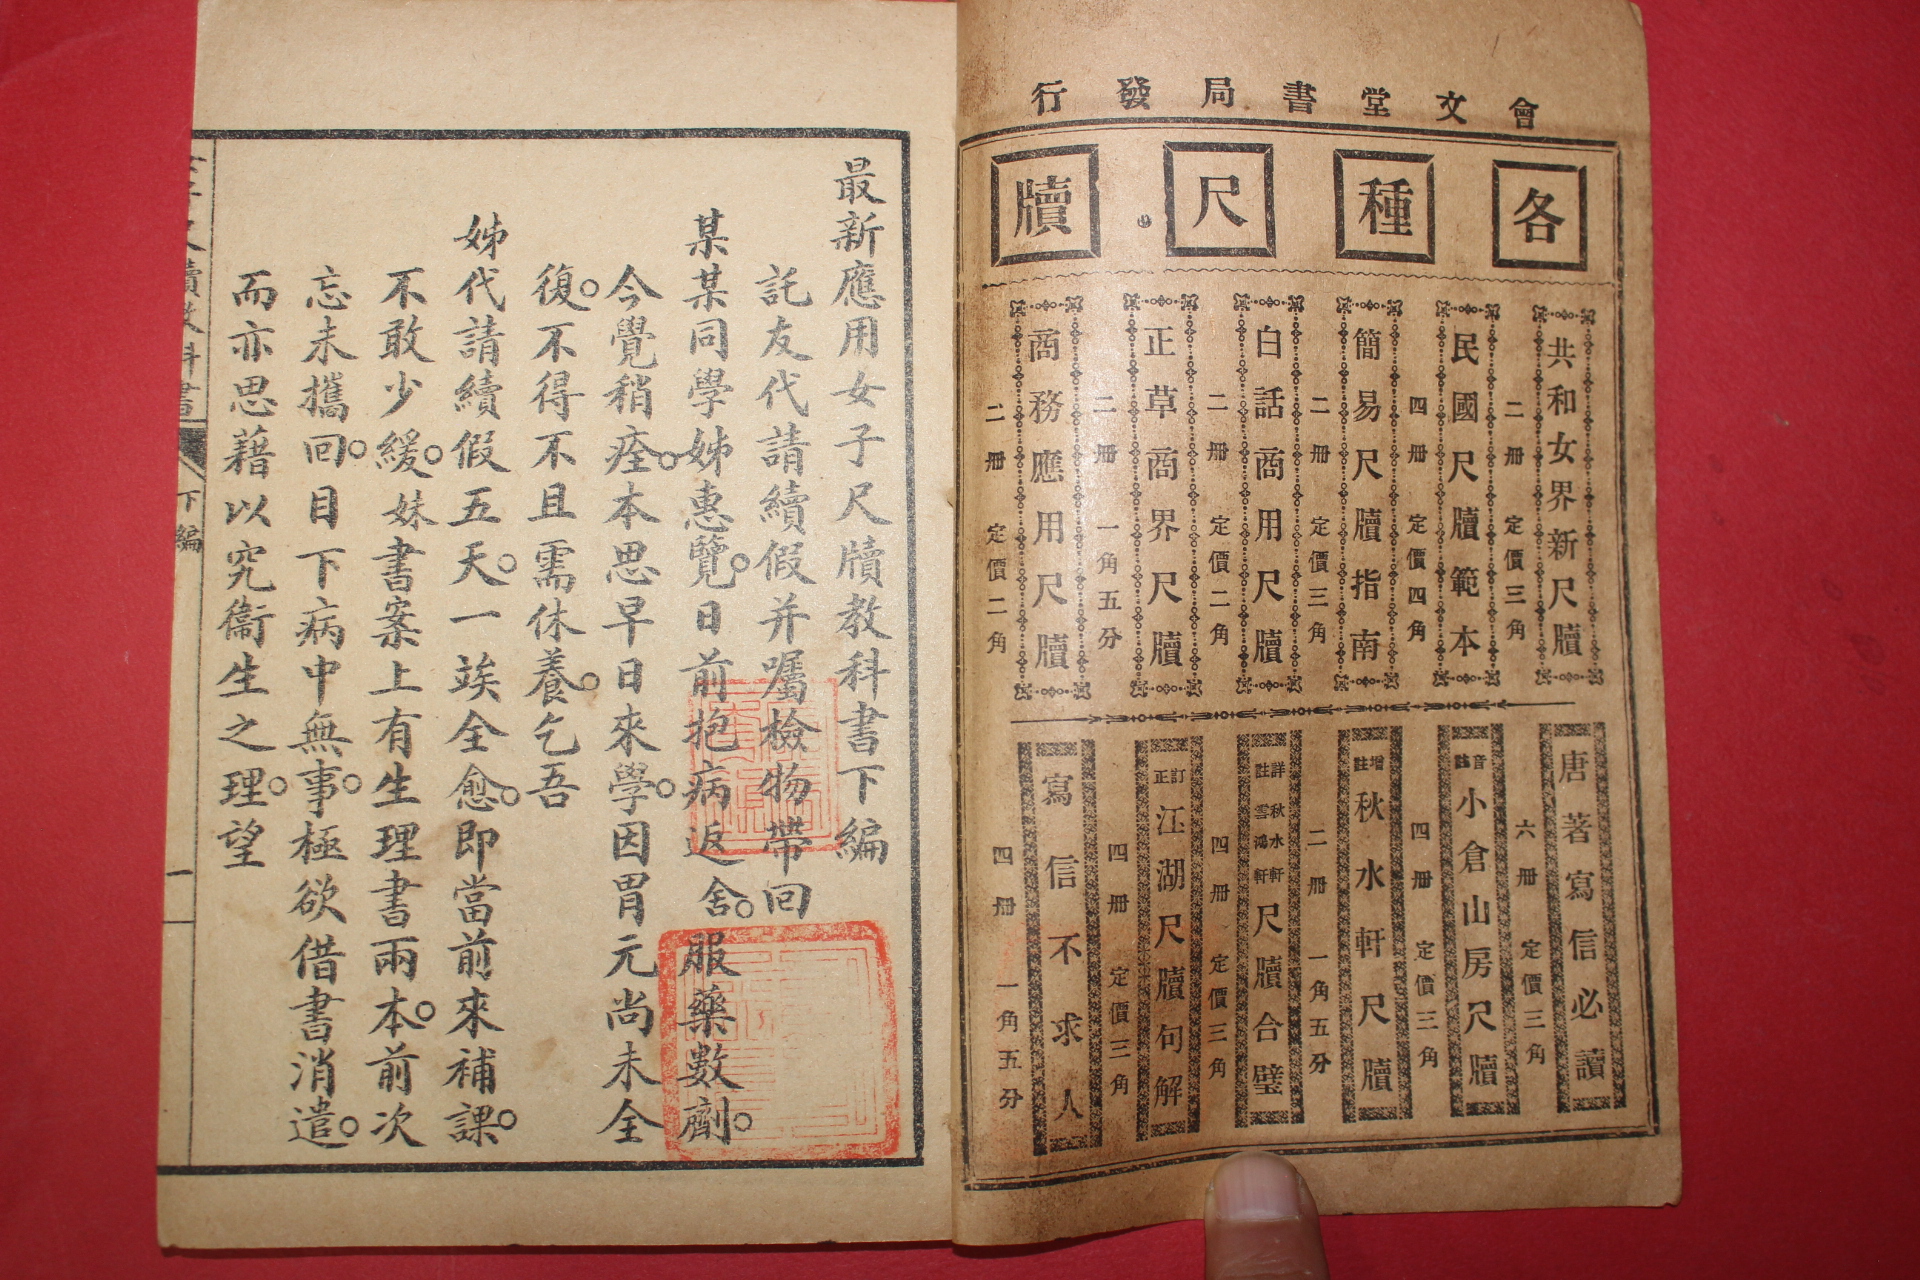 會文堂書局發行
各種尺牘
共和女界新尺牘
二册 定價三角
民國尺牘範本
四册 定價四角
簡易尺牘指南
二册 定價三角
白話商用尺牘
二册 定價二角
正草商界尺牘
二册 一角五分
商務應用尺牘
二册 定價二角
唐著寫信必讀
六册 定價三角
音註小倉山房尺牘
四册 定價三角
增註秋水軒尺牘
二册 一角五分
詳註秋水軒雪鴻軒尺牘合璧
四册 定價三角
訂正江湖尺牘句解
四册 定價三角
寫信不求人
四册 一角五分
最新應用女子尺牘教科書下編
託友代請續假并囑檢物帶回
某某同學姊惠覽。日前抱病返舍。服藥數劑。
今覺稍痊。本思早日來學。因胃元尚未全
復。不得不且需休養。乞吾
姊代請續假五天。一竢全愈。即當前來補課。
不敢少緩。妹書案上有生理書兩本。前次
忘未攜回。目下病中無事。極欲借書消遣。
而亦思藉以究衞生之理。望
女子尺牘教科書 下編 一